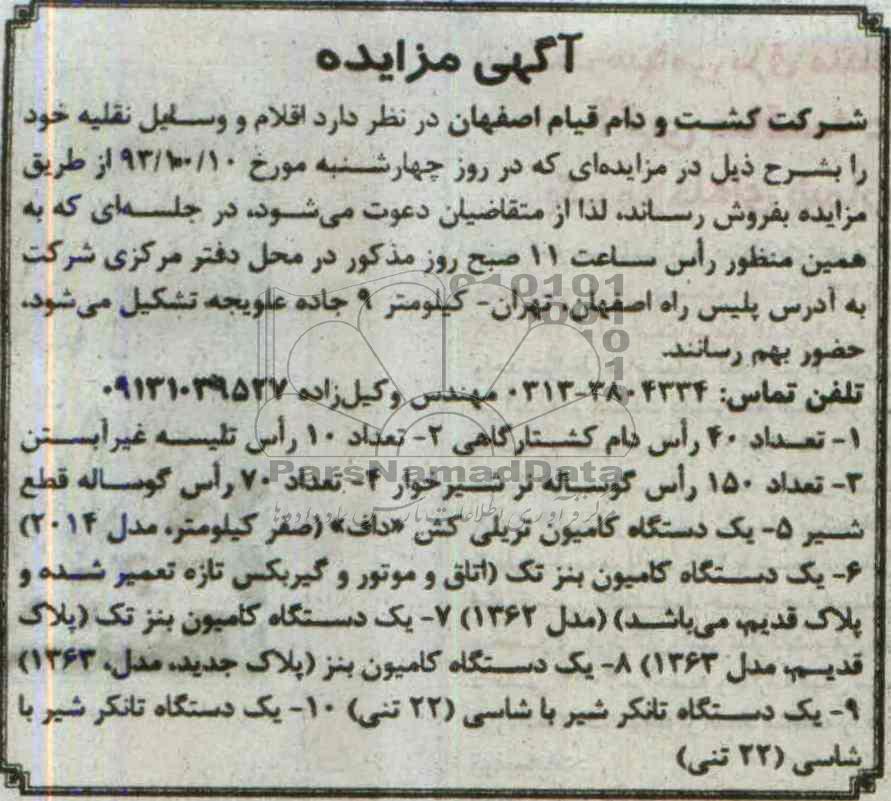 آگهی مزایده
شرکت کشت و دام قیام اصفهان در نظر دارد اقلام و وسایل نقلیه خود
را بشرح ذیل در مزایده‌ای که در روز چهارشنبه مورخ ۹۳/۱۰/۱۰ از طریق
مزایده بفروش رساند، لذا از متقاضیان دعوت می‌شود، در جلسه‌ای که به
همین منظور رأس ساعت ۱۱ صبح روز مذکور در محل دفتر مرکزی شرکت
به آدرس پلیس راه اصفهان، تهران- کیلومتر ۹ جاده علویجه تشکیل می‌شود،
حضور بهم رسانند.
تلفن تماس: ۳۸۰۴۳۳۴-۰۳۱۳ مهندس وکیل‌زاده ۰۹۱۳۱۰۳۹۵۲۷
۱- تعداد ۴۰ رأس دام کشتارگاهی ۲- تعداد ۱۰ رأس تلیسه غیرآبستن
ParsNamadData
۳- تعداد ۱۵۰ رأس گوساله نر شیرخوار ۴- تعداد ۷۰ رأس گوساله قطع
شیر ۵- یک دستگاه کامیون تریلی کش «داف» (صفر کیلومتر، مدل ۲۰۱۴)
۶- یک دستگاه کامیون بنز تک (اتاق و موتور و گیربکس تازه تعمیر شده و
پلاک قدیم، می‌باشد) (مدل ۱۳۶۲) ۷- یک دستگاه کامیون بنز تک (پلاک
قدیم، مدل ۱۳۶۳) ۸- یک دستگاه کامیون بنز (پلاک جدید، مدل، ۱۳۶۳)
۹- یک دستگاه تانکر شیر با شاسی (۲۲ تنی) ۱۰- یک دستگاه تانکر شیر با
شاسی (۲۲ تنی)